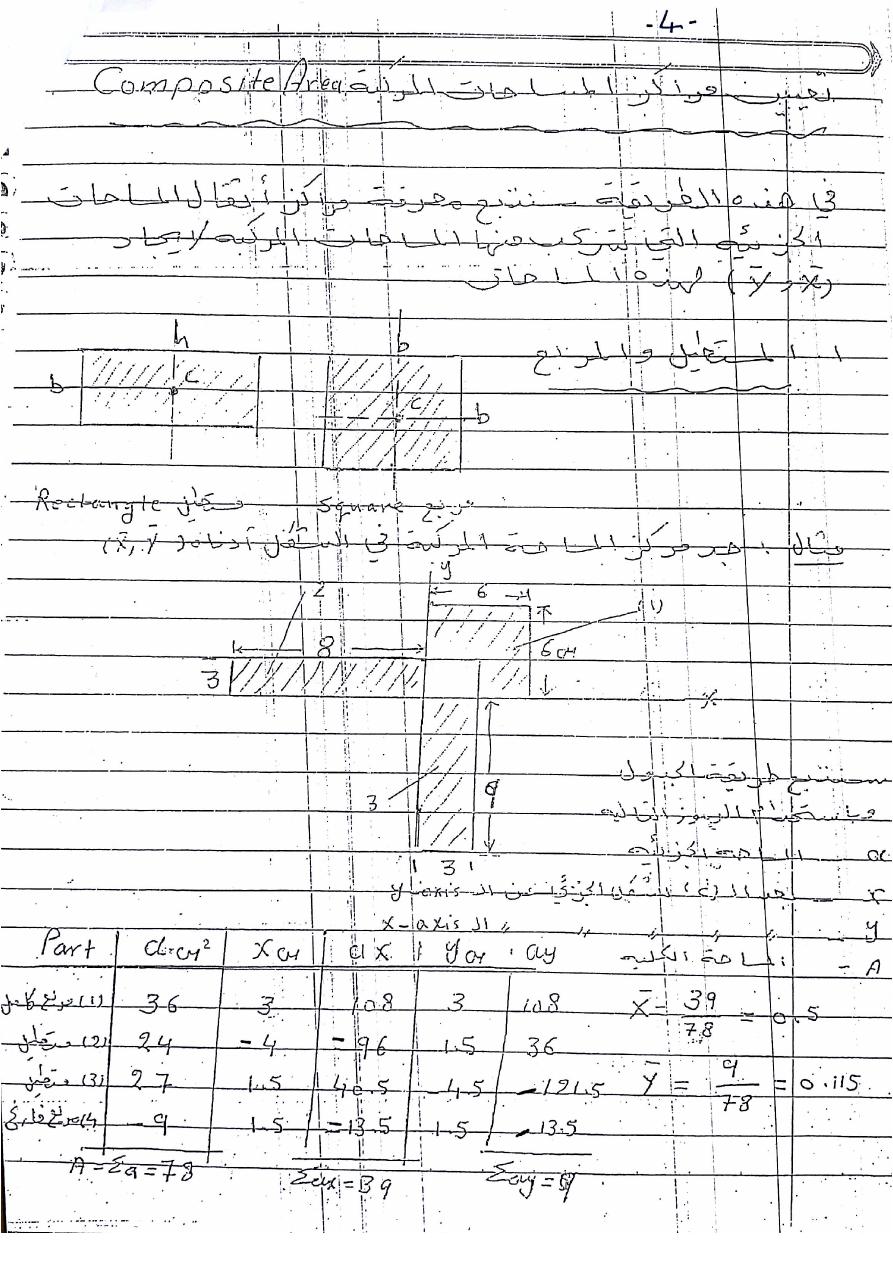 -4-
تعيين مراكز المساحات المركبة Composite Area
في هذه الطريقة سنتبع معرفة مراكز أثقال المساحات
الجزئيه التي تتركب منها المساحات المركبه لايجاد
(x̄ , ȳ) لهذه المساحات
١. المستطيل والمربع
h
b
b
c
c
b
مربع Square
مستطيل Rectangle
مثال : جد مركز المساحة المركبة في الشكل أدناه (x̄, ȳ)
y
2
6
(1)
8
6 cm
3
x
سنتبع طريقة الجدول
وباستخدام الرموز التاليه
3
9
a المساحه الجزئيه
3
x بعد الـ (c) للشكل الجزئي عن الـ y-axis
y 〃 〃 〃 〃 〃 الـ x-axis
A - المساحة الكليه
Part a cm² x cm ax y cm ay
(1) مربع كامل 36 3 108 3 108
(2) مستطيل 24 -4 -96 1.5 36
(3) مستطيل 27 1.5 40.5 4.5 -121.5
(4) مربع فارغ -9 1.5 -13.5 1.5 -13.5
A = Σa = 78 Σax = 39 Σay = 9
X̄ = 39/78 = 0.5
Ȳ = 9/78 = 0.115